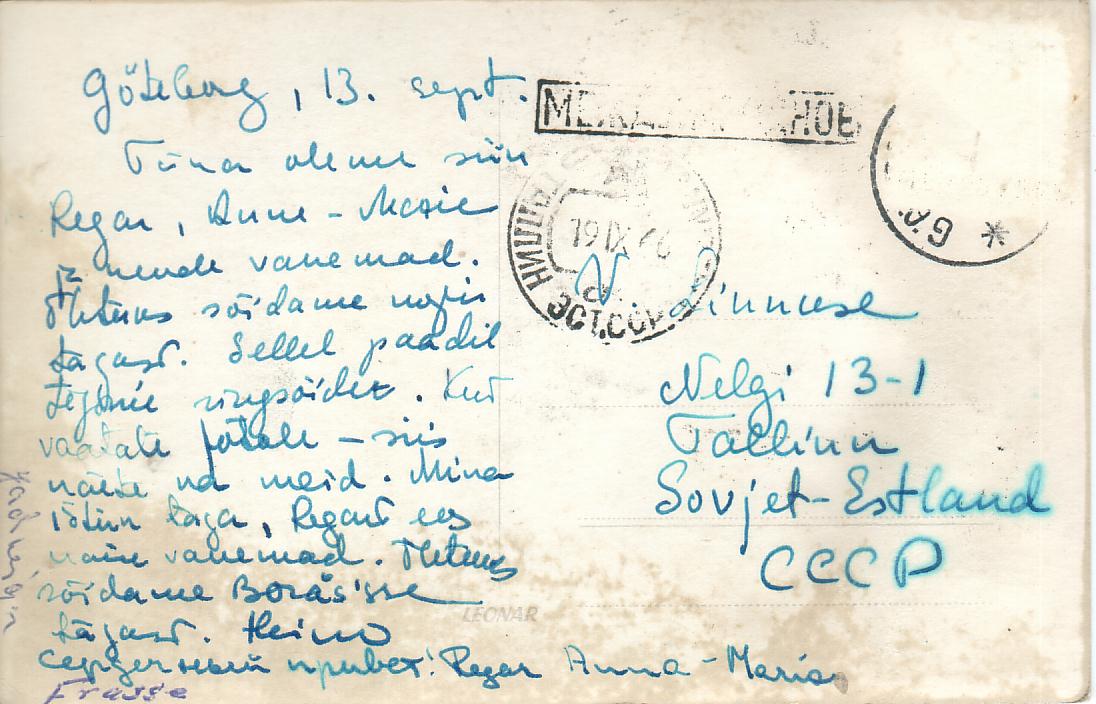 Göteborg, 13. sept.
Täna oleme siin
Regar, Anne-Marie
ja nende vanemad.
Õhtuks sõidame
tagasi. Sellel paadil
tegime ringsõidu. Kui
vaatate fotole – siis
näete ka meid. Mina
istun taga, Regar ees
vanemad. Õhtuks
sõidame Borås'sse
tagasi. Heino
Сердечный привет! Regar Anna-Maria
Frasse
МЕЖДУ
19 IX 66
ЭСТ.ССР
G.A. *
Linnuse
Nelgi 13-1
Tallinn
Sovjet-Estland
CCCP
LEONAR